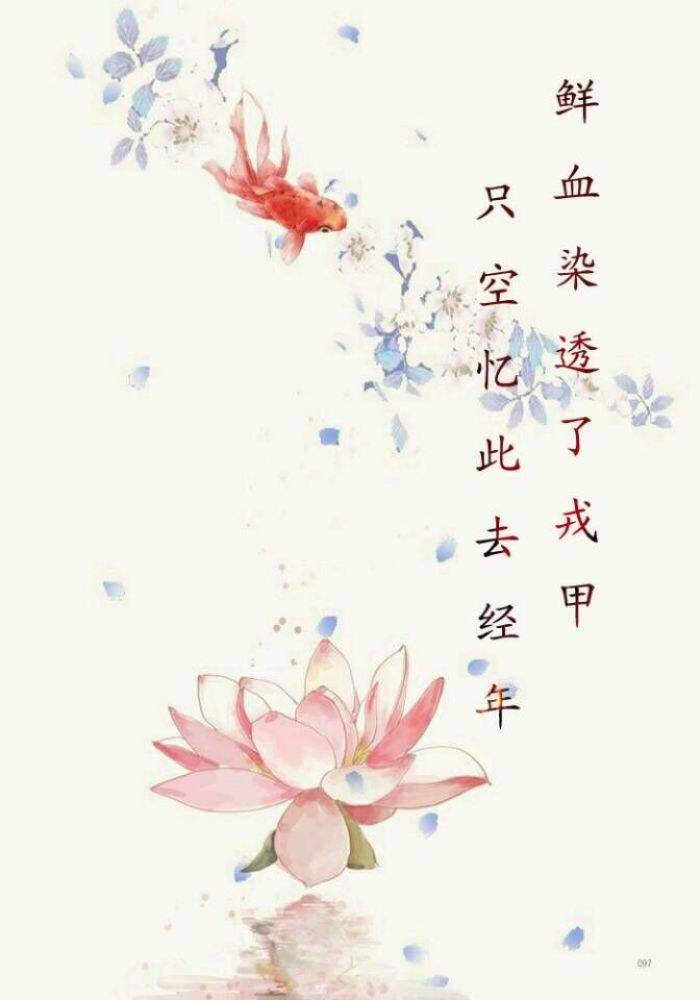 鲜血染透了戎甲
只空忆此去经年
097